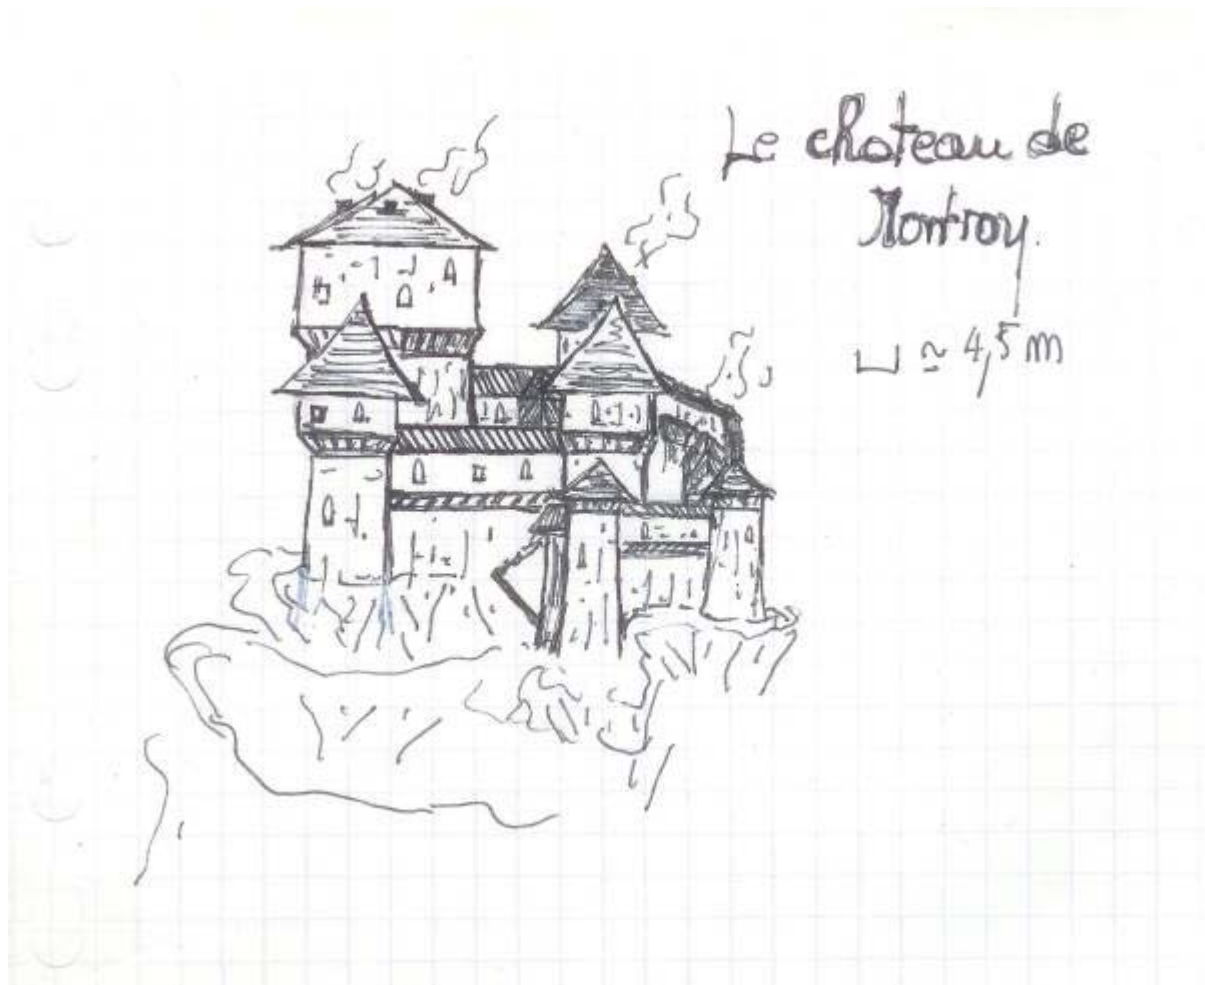 Le chateau de
Montroy.
⊔ ≃ 4,5 m